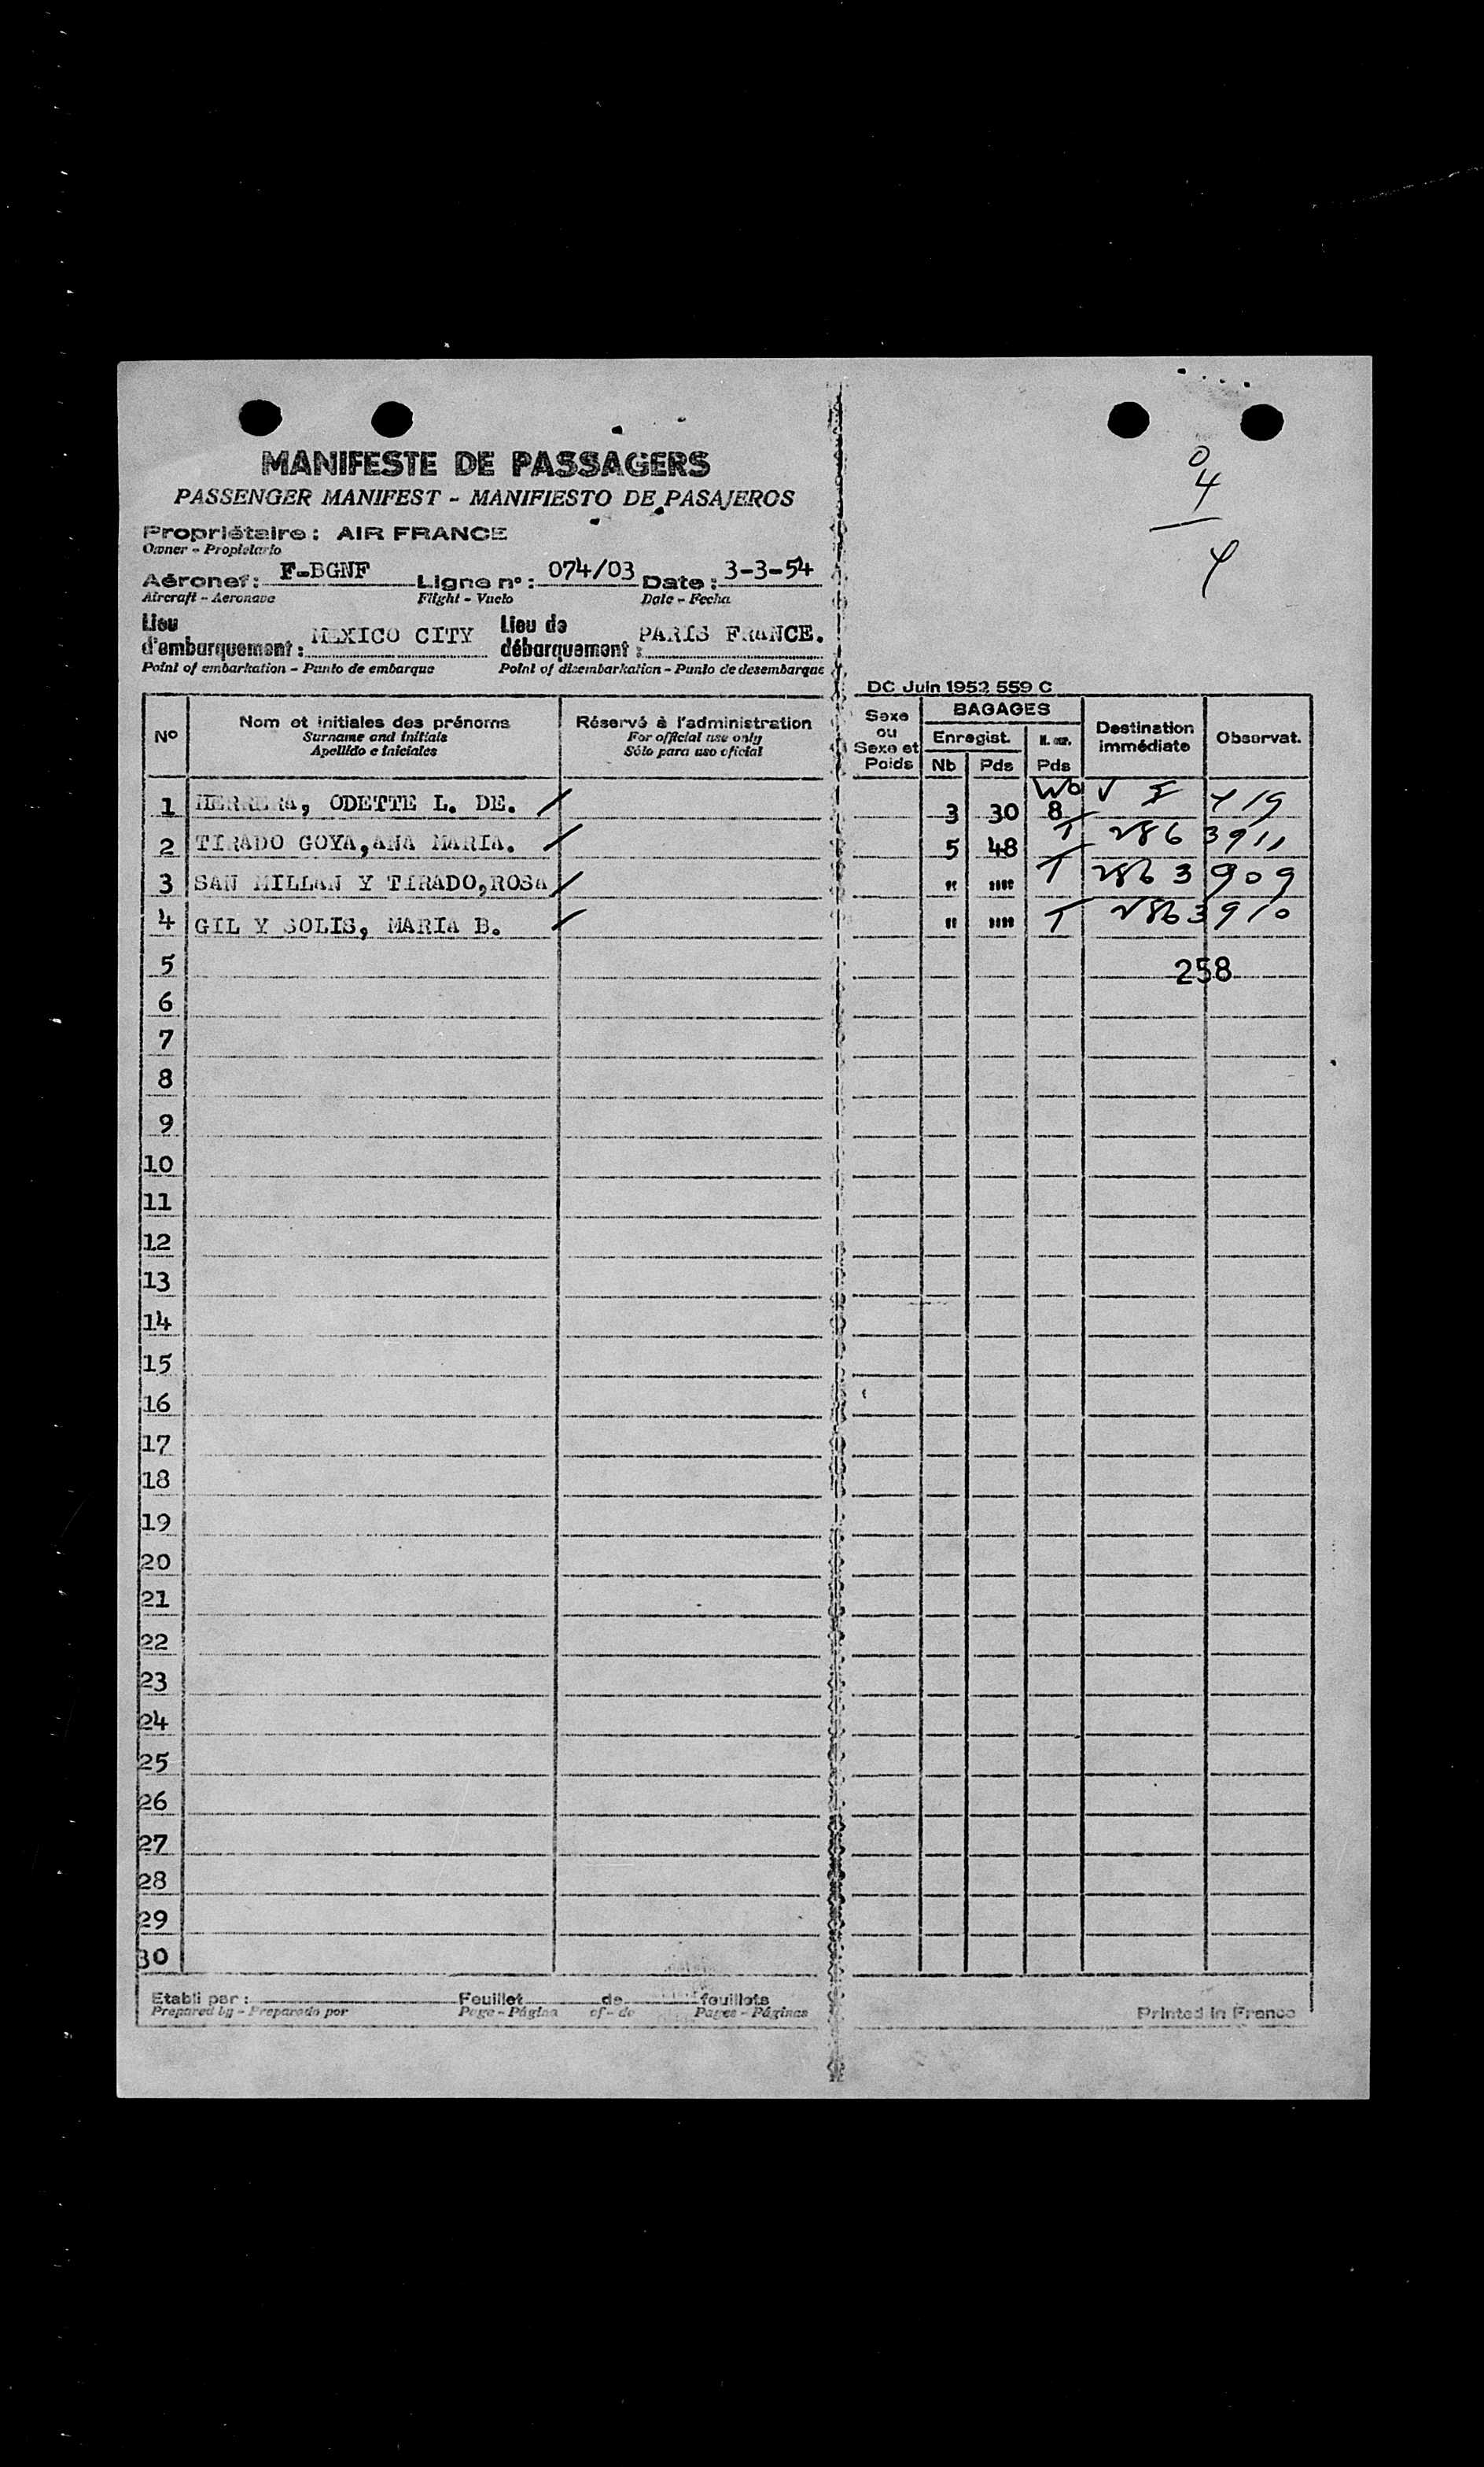 0
4
4
MANIFESTE DE PASSAGERS
PASSENGER MANIFEST - MANIFIESTO DE PASAJEROS
Propriétaire : AIR FRANCE
Owner - Propietario
Aéronef : F-BGNF Ligne nº : 074/03 Date : 3-3-54
Aircraft - Aeronave Flight - Vuelo Date - Fecha
Lieu d'embarquement : MEXICO CITY Lieu de débarquement : PARIS FRANCE.
Point of embarkation - Punto de embarque Point of disembarkation - Punto de desembarque
DC Juin 1952 559 C
Nº Nom et initiales des prénoms Réservé à l'administration Sexe ou Sexe et Poids BAGAGES Destination immédiate Observat.
Surname and initials For official use only Enregist.
Apellido e iniciales Sólo para uso oficial Nb Pds Pds
1 HERRERA, ODETTE L. DE. / 3 30 8
2 TIRADO GOYA,ANA MARIA. / 5 48 T 286 3911
3 SAN MILLAN Y TIRADO,ROSA / " "" T 2863 909
4 GIL Y SOLIS, MARIA B. / " "" T 2863910
5 258
6
7
8
9
10
11
12
13
14
15
16
17
18
19
20
21
22
23
24
25
26
27
28
29
30
Etabli par : Feuillet de feuillets
Prepared by - Preparado por Page - Página of - de Pages - Páginas
Printed in France